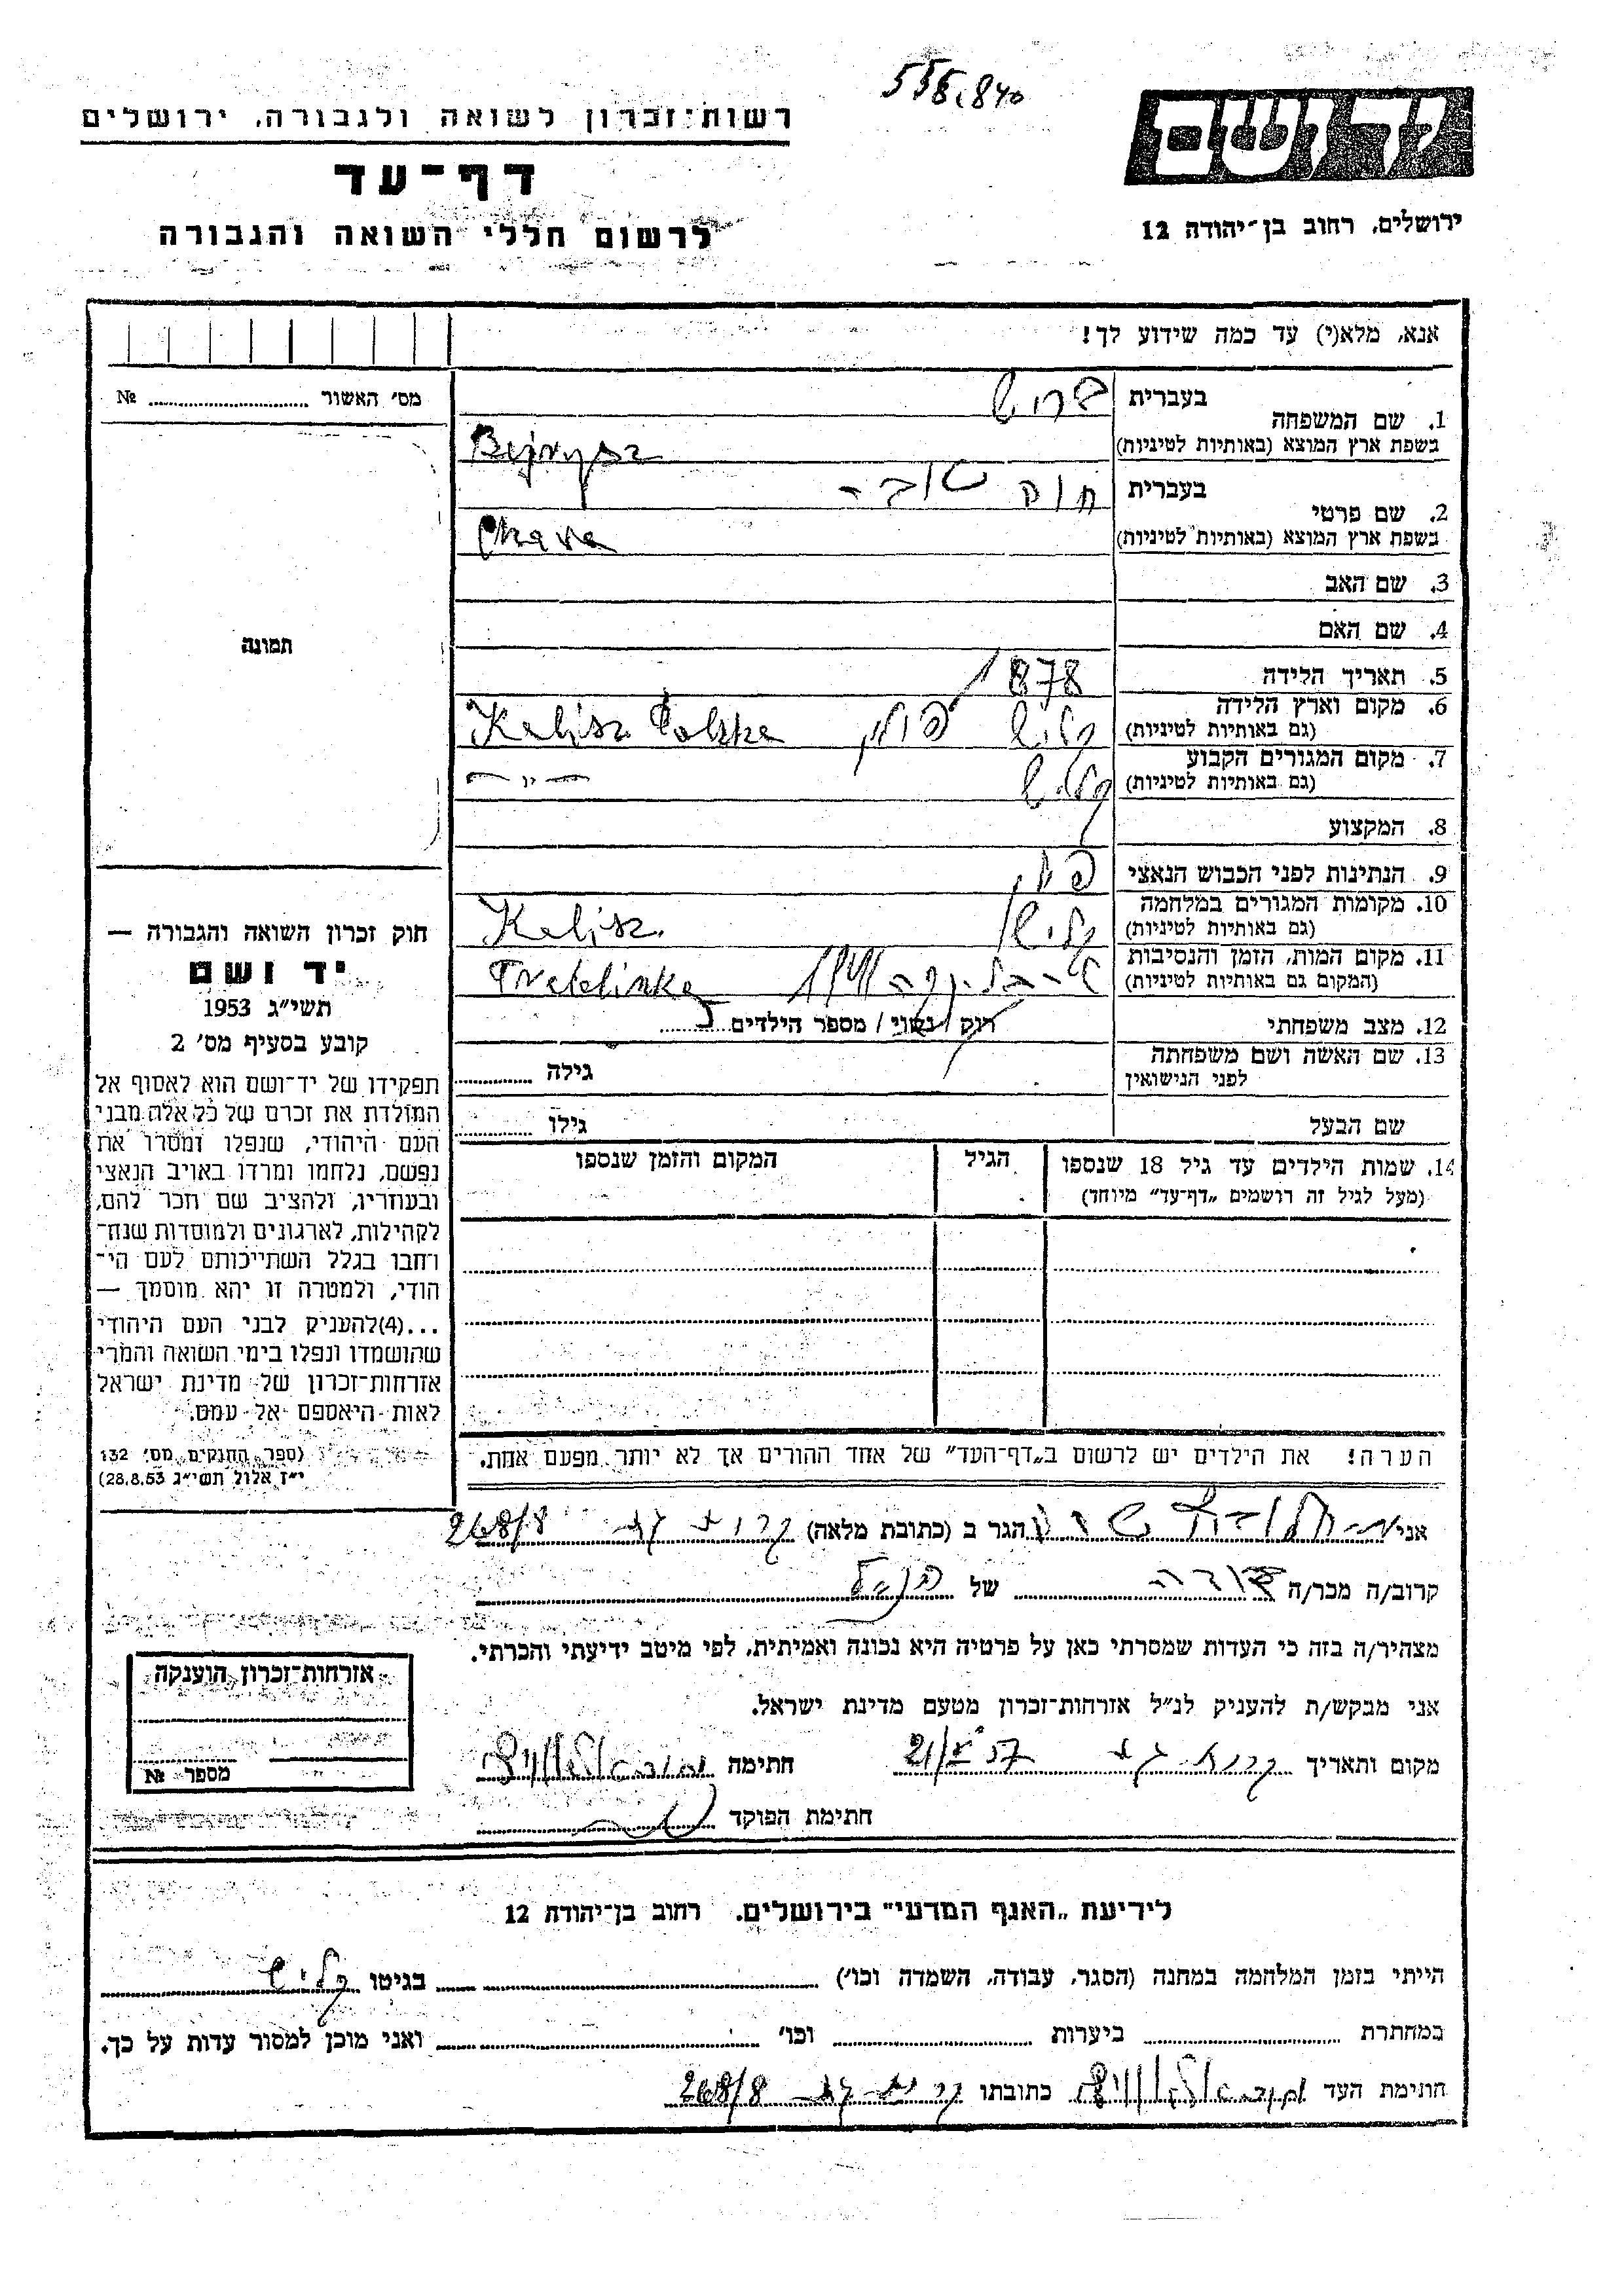 556.840
רשות־זכרון לשואה ולגבורה, ירושלים
דף־עד
לרשום חללי השואה והגבורה
יד ושם
ירושלים, רחוב בן־יהודה 12
אנא, מלא(י) עד כמה שידוע לך!
מס׳ האשור № 
תמונה
1. שם המשפחה
בעברית
בשפת ארץ המוצא (באותיות לטיניות) Bejrysz
2. שם פרטי
בעברית חוה
בשפת ארץ המוצא (באותיות לטיניות) Chava
3. שם האב
4. שם האם
5. תאריך הלידה 1878
6. מקום וארץ הלידה קליש פולין Kalisz Polska
(גם באותיות לטיניות)
7. מקום המגורים הקבוע קליש — וו —
(גם באותיות לטיניות)
8. המקצוע
9. הנתינות לפני הכבוש הנאצי פולין
10. מקומות המגורים במלחמה קליש Kalisz.
(גם באותיות לטיניות)
11. מקום המות, הזמן והנסיבות טרבלינקה Treblinka
(המקום גם באותיות לטיניות)
12. מצב משפחתי רווק / נשוי / מספר הילדים
13. שם האשה ושם משפחתה גילה
לפני הנישואין
שם הבעל גילו
14. שמות הילדים עד גיל 18 שנספו הגיל המקום והזמן שנספו
(מעל לגיל זה רושמים „דף־עד״ מיוחד)
הערה! את הילדים יש לרשום ב„דף־העד״ של אחד ההורים אך לא יותר מפעם אחת.
חוק זכרון השואה והגבורה —
יד ושם
תשי״ג 1953
קובע בסעיף מס׳ 2
תפקידו של יד־ושם הוא לאסוף אל
המולדת את זכרם של כל אלה מבני
העם היהודי, שנפלו ומסרו את
נפשם, נלחמו ומרדו באויב הנאצי
ובעוזריו, ולהציב שם וזכר להם,
לקהילות, לארגונים ולמוסדות שנח־
רחבו בגלל השתייכותם לעם הי־
הודי, ולמטרה זו יהא מוסמך —
...(4)להעניק לבני העם היהודי
שהושמדו ונפלו בימי השואה והמרי
אזרחות־זכרון של מדינת ישראל
לאות היאספם אל עמם.
(ספר החוקים מס׳ 132
י״ז אלול תשי״ג 28.8.53)
אני הגר ב (כתובת מלאה) קרית גת 268/8
קרוב/ה מכר/ה של
מצהיר/ה בזה כי העדות שמסרתי כאן על פרטיה היא נכונה ואמיתית, לפי מיטב ידיעתי והכרתי.
אני מבקש/ת להעניק לנ״ל אזרחות־זכרון מטעם מדינת ישראל.
מקום ותאריך קרית גת חתימה
חתימת הפוקד
אזרחות־זכרון הוענקה
מספר №
לידיעת „האגף המדעי״ בירושלים, רחוב בן־יהודה 12
הייתי בזמן המלחמה במחנה (הסגר, עבודה, השמדה וכו׳) בגיטו קליש
במחתרת ביערות וכו׳ ואני מוכן למסור עדות על כך.
חתימת העד כתובתו קרית גת 268/8